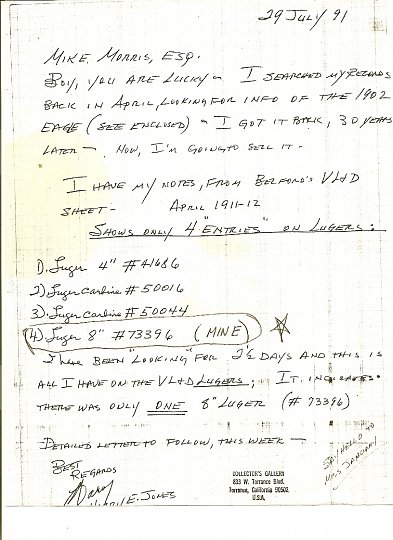 29 July 91
Mike Morris, Esq.
Boy, you are lucky - I searched my records
back in April, looking for info of the 1902
Eagle (see enclosed) - I got it back, 30 years
later - Now, I'm going to sell it -
I have my notes, from Belford's VL+D
sheet - April 1911-12
Shows only 4 "entries" on Lugers:
1). Luger 4" #41686
2) Luger Carbine #50016
3). Luger Carbine #50044
4) Luger 8" #73396 (MINE)
I have been "looking" for 2½ days and this is
all I have on the VL+D Lugers; It indicates
there was only ONE 8" Luger (#73396)
Detailed letter to follow, this week -
Best
Regards
Harry E. Jones
COLLECTOR'S GALLERY
833 W. Torrance Blvd.
Torrance, California 90502
U.S.A.
Say hello to
Miss January